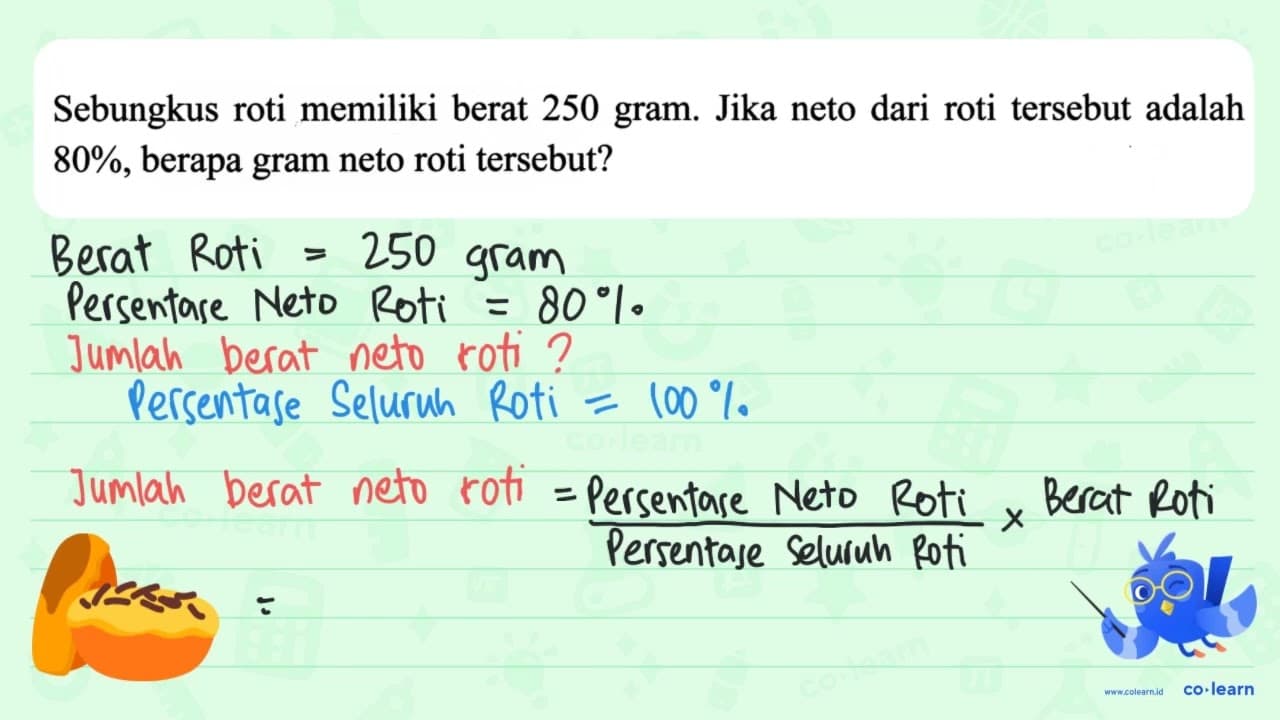 Sebungkus roti memiliki berat 250 gram. Jika neto dari roti tersebut adalah
80%, berapa gram neto roti tersebut?
Berat Roti = 250 gram
Persentase Neto Roti = 80%
Jumlah berat neto roti ?
Persentase Seluruh Roti = 100%
Jumlah berat neto roti = Persentase Neto Roti × Berat Roti
Persentase Seluruh Roti
=
www.colearn.id co·learn
co·learn
co·learn
co·learn
co·learn